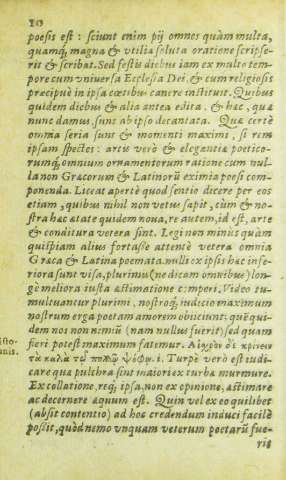 10
poësis est: sciunt enim pij omnes quàm multa,
quamq́; magna & vtilia soluta oratione scripse-
rit & scribat. Sed festis diebus iam ex multo tem-
pore cum vniuersa Ecclesia Dei, & cum religiosis
precipuè in ipsa cœtibus canere instituit. Quibus
quidem diebus & alia antea edita, & hæc, quæ
nunc damus, sunt ab ipso decantata. Quæ certè
omnia seria sunt & momenti maximi, si rem
ipsam spectes: artis verò & elegantiæ poetico-
rumq́; omnium ornamentorum ratione cum nul-
la non Græcorum & Latinorũ eximia poesi com-
ponenda. Liceat apertè quod sentio dicere per eos
etiam, quibus nihil non vetus sapit, cùm & no-
stra hæc ætate quidem noua, re autem, id est, arte
& conditura vetera sint. Legi non minùs quàm
quispiam alius fortasse attentè vetera omnia
Græca & Latina poemata. nulli ex ipsis hæc infe-
riora sunt visa, plurimis (ne dicam omnibus) lon-
gè meliora iusta æstimatione comperi. Video tu-
multuantur plurimi, nostroq́; iudicio maximum
nostrum erga poetam amorem obijciunt: quẽ qui-
dem nos non nimiũ (nam nullus fuerit) sed quàm
fieri potest maximum fatemur. Αἰσχρὸν δὲ κρίνειν
τὰ καλὰ τῷ πολλῷ ψόφῳ. i. Turpè verò est iudi-
care quæ pulchra sint maiori ex turba murmure.
Ex collatione, req́; ipsa, non ex opinione, æstimare
ac decernere æquum est. Quin vel ex eo quilibet
(absit contentio) ad hoc credendum induci facilè
possit, quòd nemo vnquam veterum poetarũ fue-
rit